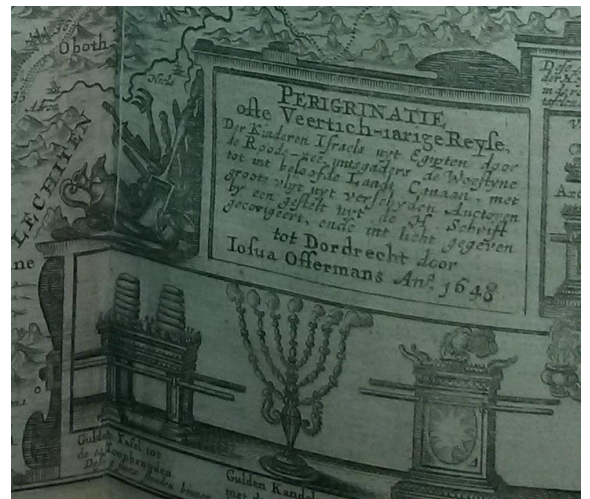 Oboth
LECHITEN
PERIGRINATIE,
ofte Veertich-iarige Reyse,
Der Kinderen Israels uyt Egipten door
de Roode-zee, mitsgaders de Woestyne
tot int beloofde Landt Canaan, met
groote vlyt uyt verschyden Auctoren
by een gestelt uyt de H. Schrift
gecorigeert, ende int licht gegeven
tot Dordrecht door
Iosua Offermans Anº. 1648
ne
Gulden Tafel tot
de Toonbrooden
Gulden Kandel